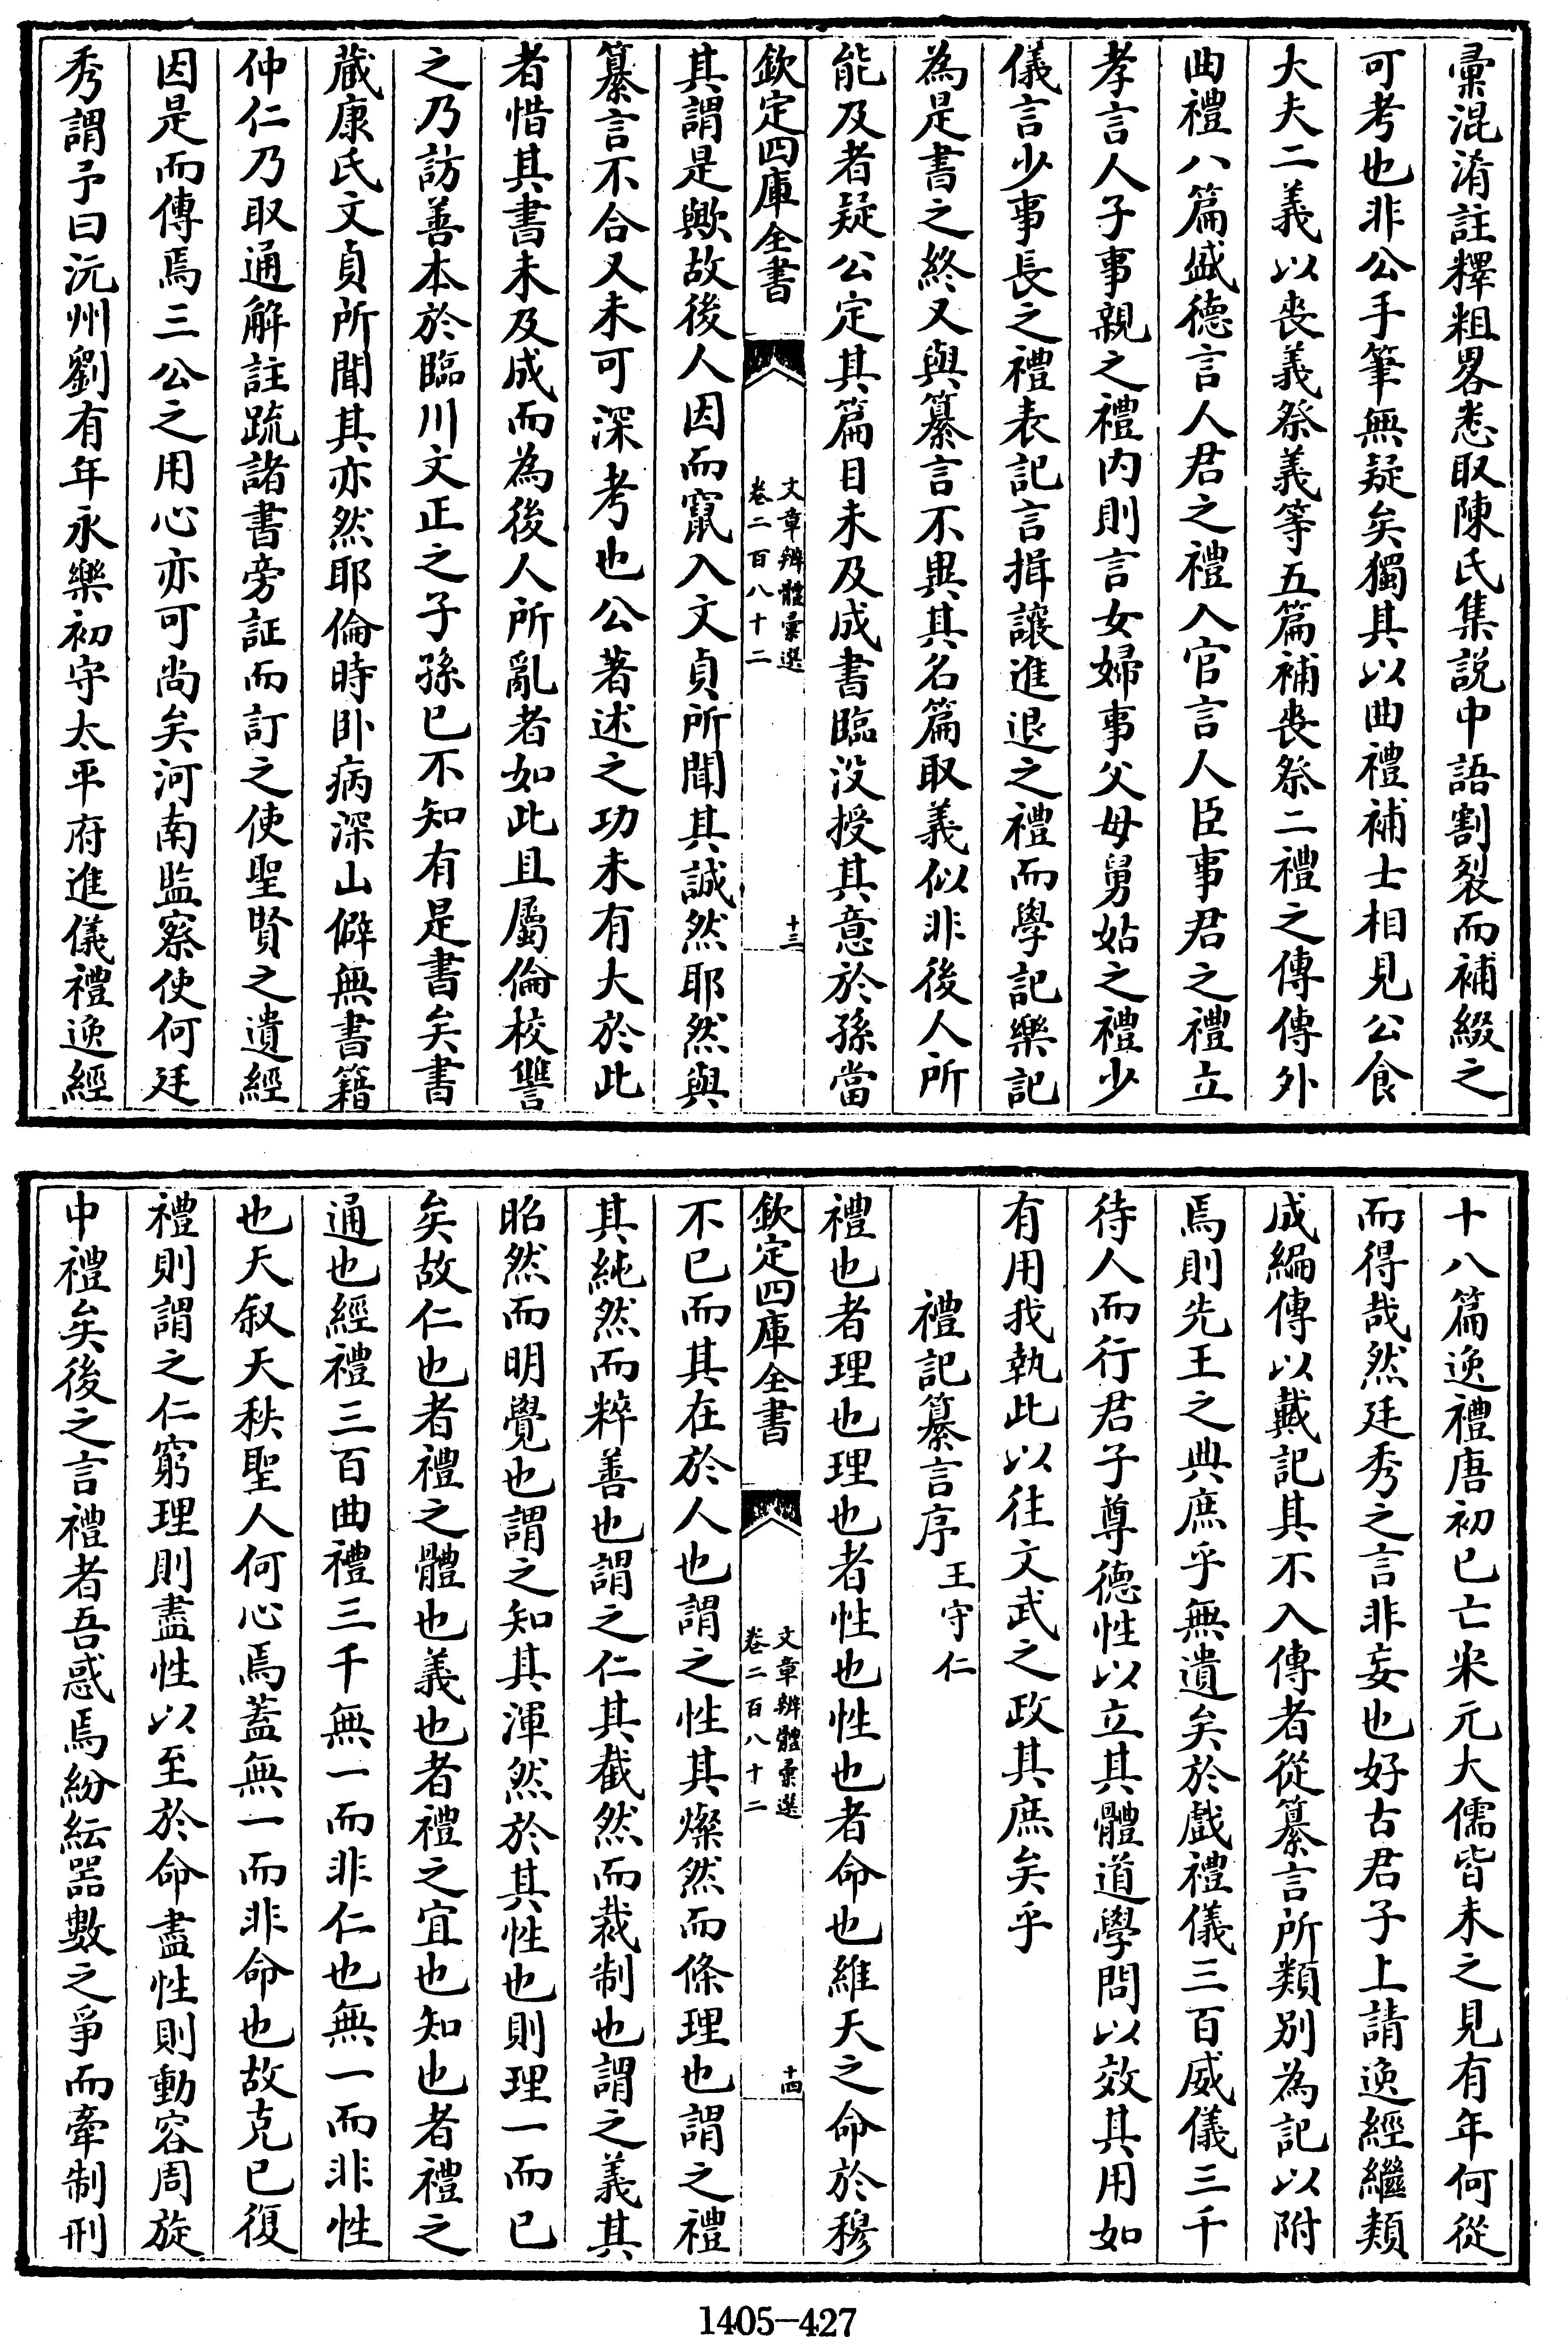 彚混淆註釋粗畧悉取陳氏集説中語割裂而補綴之
可考也非公手筆無疑矣獨其以曲禮補士相見公食
大夫二義以喪義祭義等五篇補喪祭二禮之傳傳外
曲禮八篇盛德言人君之禮入官言人臣事君之禮立
孝言人子事親之禮内則言女婦事父母舅姑之禮少
儀言少事長之禮表記言揖讓進退之禮而學記樂記
為是書之終又與纂言不異其名篇取義似非後人所
能及者疑公定其篇目未及成書臨没授其意於孫當
欽定四庫全書
文章辨體彚選
卷二百八十二
十三
其謂是歟故後人因而竄入文貞所聞其誠然耶然與
纂言不合又未可深考也公著述之功未有大於此
者惜其書未及成而為後人所亂者如此且屬倫校讐
之乃訪善本於臨川文正之子孫已不知有是書矣書
蔵康氏文貞所聞其亦然耶倫時卧病深山僻無書籍
仲仁乃取通解註疏諸書旁証而訂之使聖賢之遺經
因是而傳焉三公之用心亦可尚矣河南監察使何廷
秀謂予曰沅州劉有年永樂初守太平府進儀禮逸經
十八篇逸禮唐初已亡宋元大儒皆未之見有年何從
而得哉然廷秀之言非妄也好古君子上請逸經繼類
成編傳以戴記其不入傳者從纂言所類别為記以附
焉則先王之典庶乎無遺矣於戲禮儀三百威儀三千
待人而行君子尊德性以立其體道學問以效其用如
有用我執此以往文武之政其庶矣乎
禮記纂言序
王守仁
禮也者理也理也者性也性也者命也維天之命於穆
欽定四庫全書
文章辨體彚選
卷二百八十二
十四
不已而其在於人也謂之性其燦然而條理也謂之禮
其純然而粹善也謂之仁其截然而裁制也謂之義其
昭然而明覺也謂之知其渾然於其性也則理一而已
矣故仁也者禮之體也義也者禮之宜也知也者禮之
通也經禮三百曲禮三千無一而非仁也無一而非性
也天叙天秩聖人何心焉蓋無一而非命也故克已復
禮則謂之仁窮理則盡性以至於命盡性則動容周旋
中禮矣後之言禮者吾惑焉紛紜器數之爭而牽制刑
1405—427